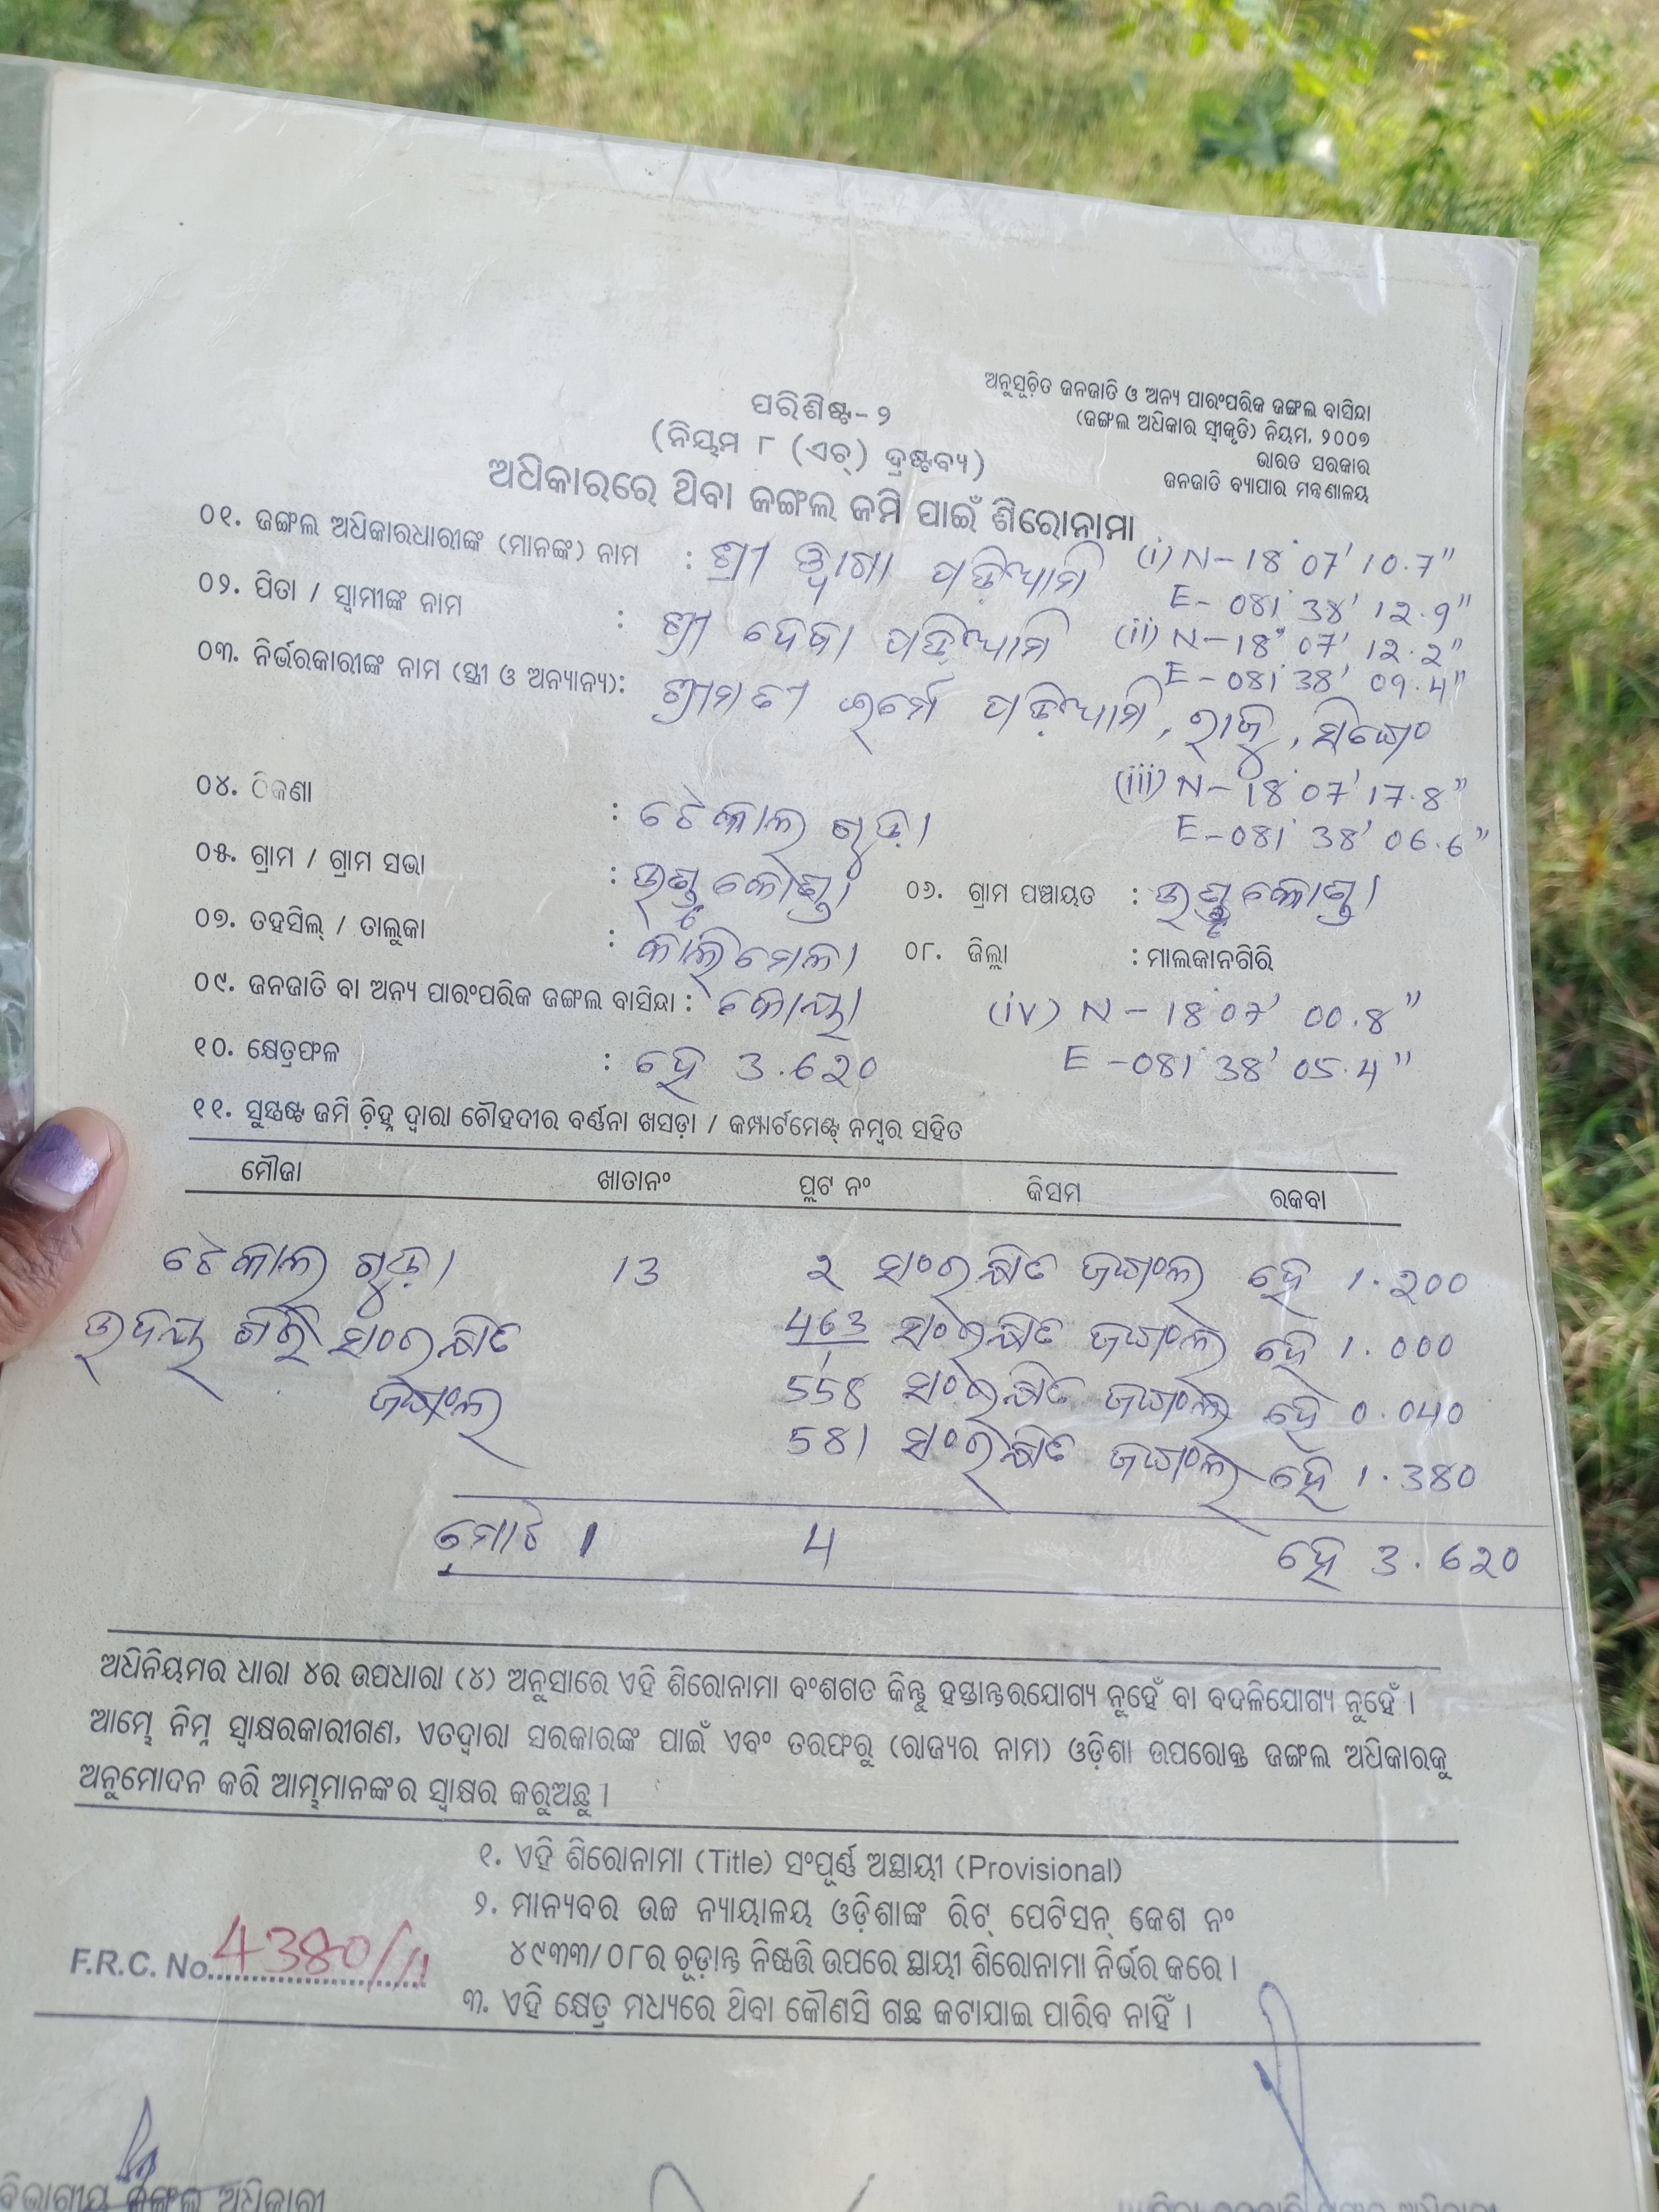 ଅନୁସୂଚିତ ଜନଜାତି ଓ ଅନ୍ୟ ପାରଂପରିକ ଜଙ୍ଗଲ ବାସିନ୍ଦା
(ଜଙ୍ଗଲ ଅଧିକାର ସ୍ୱୀକୃତି) ନିୟମ, ୨୦୦୭
ଭାରତ ସରକାର
ଜନଜାତି ବ୍ୟାପାର ମନ୍ତ୍ରଣାଳୟ
ପରିଶିଷ୍ଟ-୨
(ନିୟମ ୮ (ଏଚ୍) ଦ୍ରଷ୍ଟବ୍ୟ)
ଅଧିକାରରେ ଥିବା ଜଙ୍ଗଲ ଜମି ପାଇଁ ଶିରୋନାମା
୦୧. ଜଙ୍ଗଲ ଅଧିକାରଧାରୀଙ୍କ (ମାନଙ୍କ) ନାମ : ଶ୍ରୀ ପଡ଼ିଆମି (i) N-18°07'10.7"
E-081°38'12.9"
୦୨. ପିତା / ସ୍ୱାମୀଙ୍କ ନାମ : ଶ୍ରୀ ଦେବା ପଡ଼ିଆମି (ii) N-18°07'12.2"
E-081°38'09.4"
୦୩. ନିର୍ଭରକାରୀଙ୍କ ନାମ (ସ୍ତ୍ରୀ ଓ ଅନ୍ୟାନ୍ୟ): ଶ୍ରୀମତୀ ପଡ଼ିଆମି, ରାଜୁ,
(iii) N-18°07'17.8"
୦୪. ଠିକଣା : ଟେକାଲ ଗୁଡ଼ା E-081°38'06.6"
୦୫. ଗ୍ରାମ / ଗ୍ରାମ ସଭା : ୦୬. ଗ୍ରାମ ପଞ୍ଚାୟତ :
୦୭. ତହସିଲ୍ / ତାଲୁକା : କାଲିମେଳା ୦୮. ଜିଲ୍ଲା : ମାଲକାନଗିରି
୦୯. ଜନଜାତି ବା ଅନ୍ୟ ପାରଂପରିକ ଜଙ୍ଗଲ ବାସିନ୍ଦା : କୋୟା (iv) N-18°07'00.8"
୧୦. କ୍ଷେତ୍ରଫଳ : ହେ 3.620 E-081°38'05.4"
୧୧. ସୁସ୍ପଷ୍ଟ ଜମି ଚିହ୍ନ ଦ୍ୱାରା ଚୌହଦୀର ବର୍ଣ୍ଣନା ଖସଡ଼ା / କମ୍ପାର୍ଟମେଣ୍ଟ୍ ନମ୍ବର ସହିତ
ମୌଜା ଖାତାନଂ ପ୍ଲଟ ନଂ କିସମ ରକବା
ଟେକାଲ ଗୁଡ଼ା 13 2 ସଂରକ୍ଷିତ ଜଙ୍ଗଲ ହେ 1.200
ଉଦୟ ଗିରି ସଂରକ୍ଷିତ 463 ସଂରକ୍ଷିତ ଜଙ୍ଗଲ ହେ 1.000
ଜଙ୍ଗଲ 558 ସଂରକ୍ଷିତ ଜଙ୍ଗଲ ହେ 0.040
581 ସଂରକ୍ଷିତ ଜଙ୍ଗଲ ହେ 1.380
ମୋଟ 1 4 ହେ 3.620
ଅଧିନିୟମର ଧାରା ୪ର ଉପଧାରା (୪) ଅନୁସାରେ ଏହି ଶିରୋନାମା ବଂଶଗତ କିନ୍ତୁ ହସ୍ତାନ୍ତରଯୋଗ୍ୟ ନୁହେଁ ବା ବଦଳିଯୋଗ୍ୟ ନୁହେଁ ।
ଆମ୍ଭେ ନିମ୍ନ ସ୍ୱାକ୍ଷରକାରୀଗଣ, ଏତଦ୍ୱାରା ସରକାରଙ୍କ ପାଇଁ ଏବଂ ତରଫରୁ (ରାଜ୍ୟର ନାମ) ଓଡ଼ିଶା ଉପରୋକ୍ତ ଜଙ୍ଗଲ ଅଧିକାରକୁ
ଅନୁମୋଦନ କରି ଆମ୍ଭମାନଙ୍କର ସ୍ୱାକ୍ଷର କରୁଅଛୁ ।
୧. ଏହି ଶିରୋନାମା (Title) ସଂପୂର୍ଣ୍ଣ ଅସ୍ଥାୟୀ (Provisional)
୨. ମାନ୍ୟବର ଉଚ୍ଚ ନ୍ୟାୟାଳୟ ଓଡ଼ିଶାଙ୍କ ରିଟ୍ ପେଟିସନ୍ କେଶ ନଂ
୪୯୩୩/୦୮ର ଚୂଡ଼ାନ୍ତ ନିଷ୍ପତ୍ତି ଉପରେ ସ୍ଥାୟୀ ଶିରୋନାମା ନିର୍ଭର କରେ ।
F.R.C. No. 4380/11
୩. ଏହି କ୍ଷେତ୍ର ମଧ୍ୟରେ ଥିବା କୌଣସି ଗଛ କଟାଯାଇ ପାରିବ ନାହିଁ ।
ବିଭାଗୀୟ ଜଙ୍ଗଲ ଅଧିକାରୀ